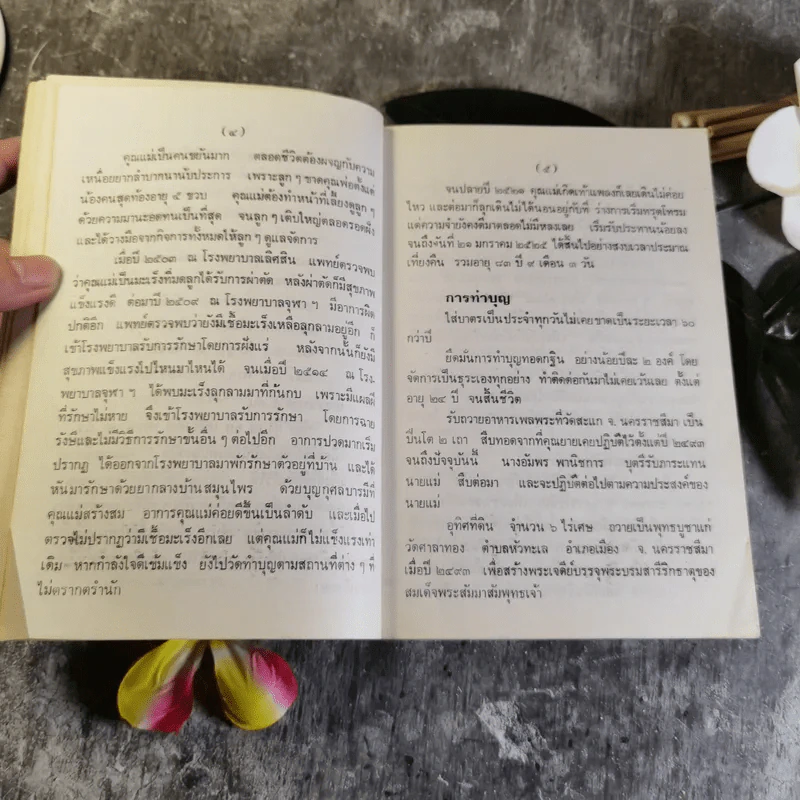 (๔)
คุณแม่เป็นคนขยันมาก ตลอดชีวิตต้องผจญกับความ
เหนื่อยยากลำบากนานัปประการ เพราะลูก ๆ ขาดคุณพ่อตั้งแต่
น้องคนสุดท้องอายุ ๕ ขวบ คุณแม่ต้องทำหน้าที่เลี้ยงดูลูก ๆ
ด้วยความมานะอดทนเป็นที่สุด จนลูก ๆ เติบใหญ่ตลอดรอดฝั่ง
และได้วางมือจากกิจการทั้งหมดให้ลูก ๆ ดูแลจัดการ
เมื่อปี ๒๕๐๓ ณ โรงพยาบาลเลิศสิน แพทย์ตรวจพบ
ว่าคุณแม่เป็นมะเร็งที่มดลูกได้รับการผ่าตัด หลังผ่าตัดก็มีสุขภาพ
แข็งแรงดี ต่อมาปี ๒๕๐๙ ณ โรงพยาบาลจุฬา ฯ มีอาการผิด
ปกติอีก แพทย์ตรวจพบว่ายังมีเชื้อมะเร็งเหลือลุกลามอยู่อีก ก็
เข้าโรงพยาบาลรับการรักษาโดยการฝังแร่ หลังจากนั้นก็ยังมี
สุขภาพแข็งแรงไปไหนมาไหนได้ จนเมื่อปี ๒๕๑๔ ณ โรง-
พยาบาลจุฬา ฯ ได้พบมะเร็งลุกลามมาที่ก้นกบ เพราะมีแผลฝี
ที่รักษาไม่หาย จึงเข้าโรงพยาบาลรับการรักษา โดยการฉาย
รังษีและไม่มีวิธีการรักษาขั้นอื่น ๆ ต่อไปอีก อาการปวดมากเริ่ม
ปรากฏ ได้ออกจากโรงพยาบาลมาพักรักษาตัวอยู่ที่บ้าน และได้
หันมารักษาด้วยยากลางบ้านสมุนไพร ด้วยบุญกุศลบารมีที่
คุณแม่สร้างสม อาการคุณแม่ค่อยดีขึ้นเป็นลำดับ และเมื่อไป
ตรวจไม่ปรากฏว่ามีเชื้อมะเร็งอีกเลย แต่คุณแม่ก็ไม่แข็งแรงเท่า
เดิม หากกำลังใจดีเข้มแข็ง ยังไปวัดทำบุญตามสถานที่ต่าง ๆ ที่
ไม่ตรากตรำนัก
(๕)
จนปลายปี ๒๕๒๑ คุณแม่เกิดเท้าแพลงก็เลยเดินไม่ค่อย
ไหว และต่อมาก็ลุกเดินไม่ได้นอนอยู่กับที่ ร่างกายเริ่มทรุดโทรม
แต่ความจำยังคงดีมาตลอดไม่มีหลงเลย เริ่มรับประทานน้อยลง
จนถึงวันที่ ๒๑ มกราคม ๒๕๒๕ ได้สิ้นไปอย่างสงบเวลาประมาณ
เที่ยงคืน รวมอายุ ๘๓ ปี ๙ เดือน ๓ วัน
การทำบุญ
ใส่บาตรเป็นประจำทุกวันไม่เคยขาดเป็นระยะเวลา ๖๐
กว่าปี
ยึดมั่นการทำบุญทอดกฐิน อย่างน้อยปีละ ๒ องค์ โดย
จัดการเป็นธุระเองทุกอย่าง ทำติดต่อกันมาไม่เคยเว้นเลย ตั้งแต่
อายุ ๒๔ ปี จนสิ้นชีวิต
รับถวายอาหารเพลพระที่วัดสะแก จ. นครราชสีมา เป็น
ปิ่นโต ๒ เถา สืบทอดจากที่คุณยายเคยปฏิบัติไว้ตั้งแต่ปี ๒๔๙๓
จนถึงปัจจุบันนี้ นางอัมพร พานิชการ บุตรีรับภาระแทน
นายแม่ สืบต่อมา และจะปฏิบัติต่อไปตามความประสงค์ของ
นายแม่
อุทิศที่ดิน จำนวน ๖ ไร่เศษ ถวายเป็นพุทธบูชาแก่
วัดศาลาทอง ตำบลหัวทะเล อำเภอเมือง จ. นครราชสีมา
เมื่อปี ๒๔๙๓ เพื่อสร้างพระเจดีย์บรรจุพระบรมสารีริกธาตุของ
สมเด็จพระสัมมาสัมพุทธเจ้า